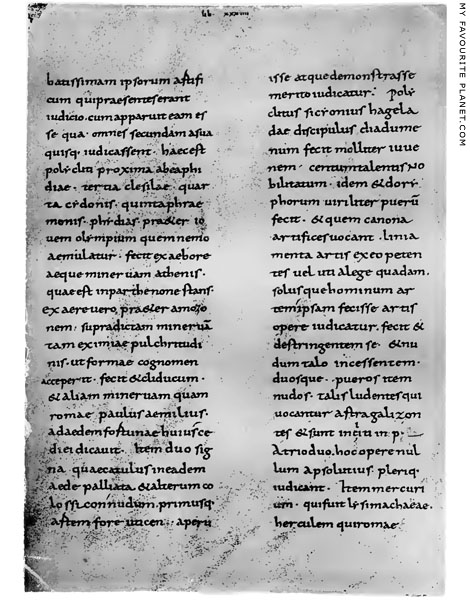 lib. xxxiiii
batissimam ipsorum artifi
cum qui praesentes erant
iudicio. cum apparuit eam es
se qua omnes secundam a sua
quisq. iudicassent. haec est
polycliti proxima ab ea phi
diae. tertia clesilae. quar
ta cydonis. quinta phrae
monis. phidias praeter io
uem olympium quem nemo
aemulatur. fecit ex aebore
aeque mineruam athenis.
quae est in parthenone stans.
ex aere uero, praeter amazo
nem. supradictam mineruā
tam eximiae pulchritudi
nis. ut formae cognomen
acceperit. fecit & cliducum.
& aliam mineruam quam
romae paulus aemilius.
ad aedem fortunae huiusce
diei dicauit. Item duo sig
na. quae catulus in eadem
aede palliata. & alterum co
lossicon nudum. primusq.
artem toreuticen. aperu
isse atque demonstrasse
merito iudicatur. Poly
clitus sicyonius hagela
dae discipulus diadume
num fecit molliter iuue
nem. centum talentis No
bilitatum. idem & dory
phorum uiriliter puerū
fecit. & quem canona
artifices uocant. linia
menta artis ex eo peten
tes uel uti a lege quadam.
solusque hominum ar
tem ipsam fecisse artis
opere iudicatur. fecit &
destringentem se. & nu
dum talo incessentem.
duosque. pueros item
nudos. talis ludentes qui
uocantur astragalizon
tes & sunt in titi in p.
Atrio duo. hoc opere nul
lum apsolutius pleriq.
iudicant. Item mercuri
um. qui fuit lysimachaeae.
herculem qui romae.
MY FAVOURITE PLANET.COM